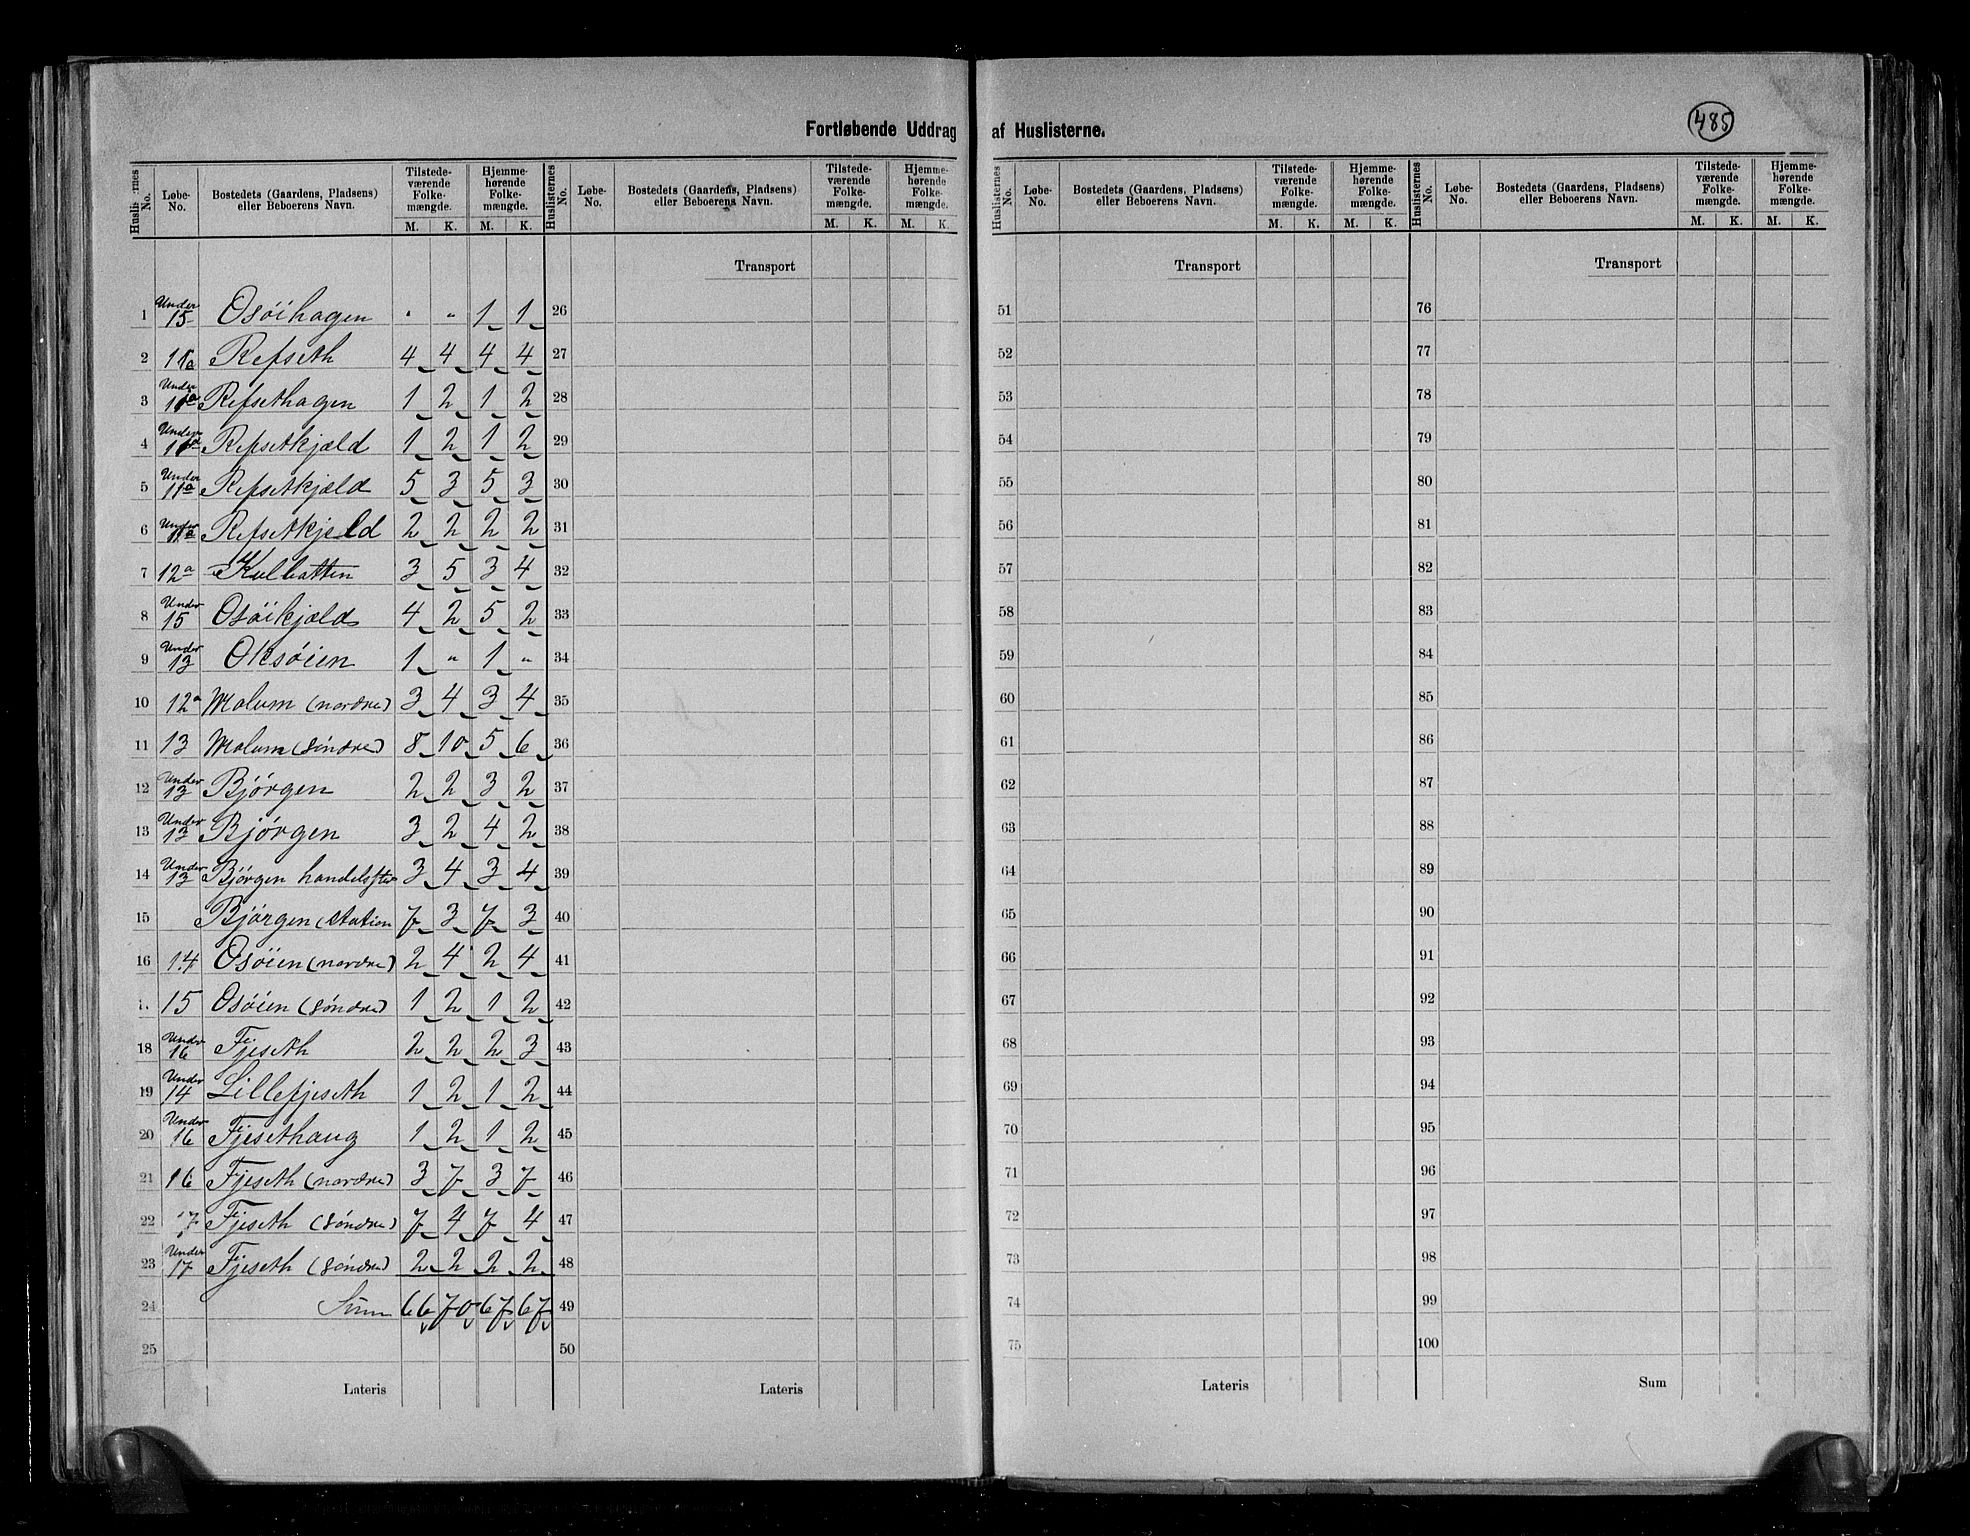 Fortløbende Uddrag af Huslisterne.
485
Huslisternes No. Løbe-No. Bostedets (Gaardens, Pladsens) eller Beboerens Navn. Tilstedeværende Folkemængde. M. K. Hjemmehørende Folkemængde. M. K.
Huslisternes No. Løbe-No. Bostedets (Gaardens, Pladsens) eller Beboerens Navn. Tilstedeværende Folkemængde. M. K. Hjemmehørende Folkemængde. M. K.
Huslisternes No. Løbe-No. Bostedets (Gaardens, Pladsens) eller Beboerens Navn. Tilstedeværende Folkemængde. M. K. Hjemmehørende Folkemængde. M. K.
Huslisternes No. Løbe-No. Bostedets (Gaardens, Pladsens) eller Beboerens Navn. Tilstedeværende Folkemængde. M. K. Hjemmehørende Folkemængde. M. K.
Transport Transport Transport
1 Under 15 Osöihagen " " 1 1 26 51 76
2 11a Refseth 4 4 4 4 27 52 77
3 Under 11a Refsethagen 1 2 1 2 28 53 78
4 Under 11a Refsetkjæld 1 2 1 2 29 54 79
5 Under 11a Refsetkjæld 5 3 5 3 30 55 80
6 Under 11a Refsetkjeld 2 2 2 2 31 56 81
7 12a Kulbatten 3 5 3 4 32 57 82
8 Under 15 Osöikjæld 4 2 5 2 33 58 83
9 Under 13 Oksöien 1 " 1 " 34 59 84
10 12a Molum (nordre) 3 4 3 4 35 60 85
11 13 Molum (söndre) 8 10 5 6 36 61 86
12 Under 13 Bjørgen 2 2 3 2 37 62 87
13 Under 13 Bjørgen 3 2 4 2 38 63 88
14 Under 13 Bjørgen handelsste 3 4 3 4 39 64 89
15 Bjørgen (station 7 3 7 3 40 65 90
16 14 Osöien (nordre) 2 4 2 4 41 66 91
15 Osöien (söndre) 1 2 1 2 42 67 92
18 Under 16 Fjeseth 2 2 2 3 43 68 93
19 Under 14 Lillefjeseth 1 2 1 2 44 69 94
20 Under 16 Fjesethaug 1 2 1 2 45 70 95
21 16 Fjeseth (nordre) 3 7 3 7 46 71 96
22 17 Fjeseth (söndre) 7 4 7 4 47 72 97
23 Under 17 Fjeseth (söndre) 2 2 2 2 48 73 98
24 Sum 66 70 67 67 49 74 99
25 50 75 100
Lateris Lateris Lateris Sum